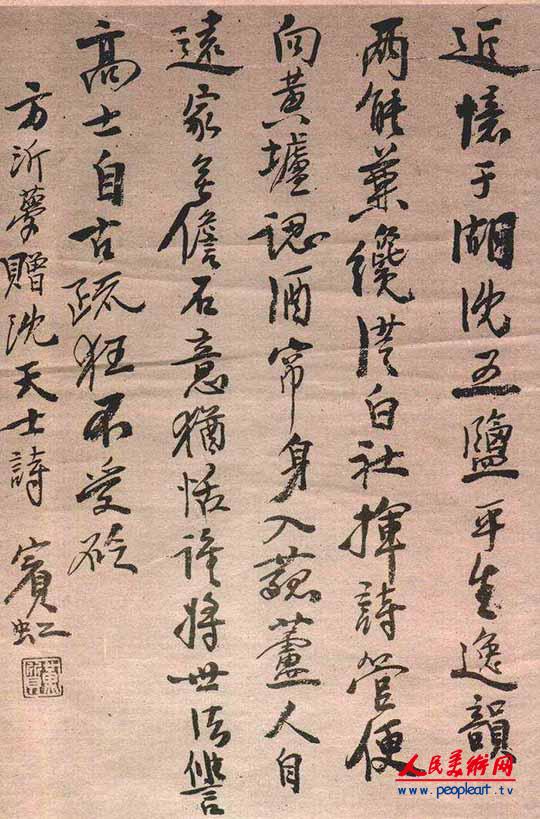 近憶于湖沈五鹽平生逸韻
兩能兼纔從白社揮詩管便
向黃壚認酒帘身入菰蘆人自
遠家無儋石意猶恬誰將世法讐
高士自古疏狂不受砭
方沂夢贈沈天士詩 賓虹
人民美术网
www.peopleart.tv